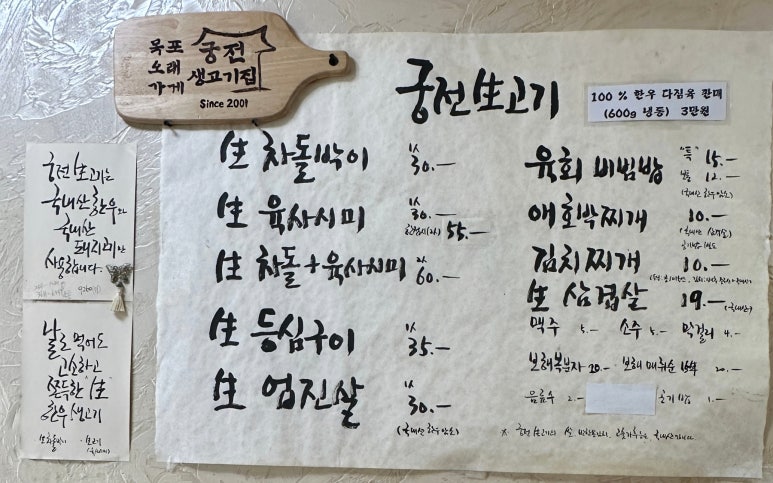 목포
오래
가게
궁전
생고기집
Since 2001
궁전 生고기
100 % 한우 다짐육 판매
(600g 냉동) 3만원
生 차돌박이 30.—
生 육사시미 30.—
55.—
生 차돌+육사시미 60.—
生 등심구이 35.—
生 엄진살 30.—
(국내산 한우 암소)
육회 비빔밥 "특" 15.—
보통 12.—
(국내산 한우 암소)
애호박찌개 10.—
김치찌개 10.—
生 삼겹살 19.— (국내산)
맥주 5.— 소주 5.— 막걸리 4.—
보해복분자 20.— 보해 매취순 20.—
음료수 2.— 공기밥 1.—
궁전 生고기는
국내산 한우와
국내산
돼지고기만
사용합니다.
날로 먹어도
고소하고
쫀득한 "生"
한우 생고기